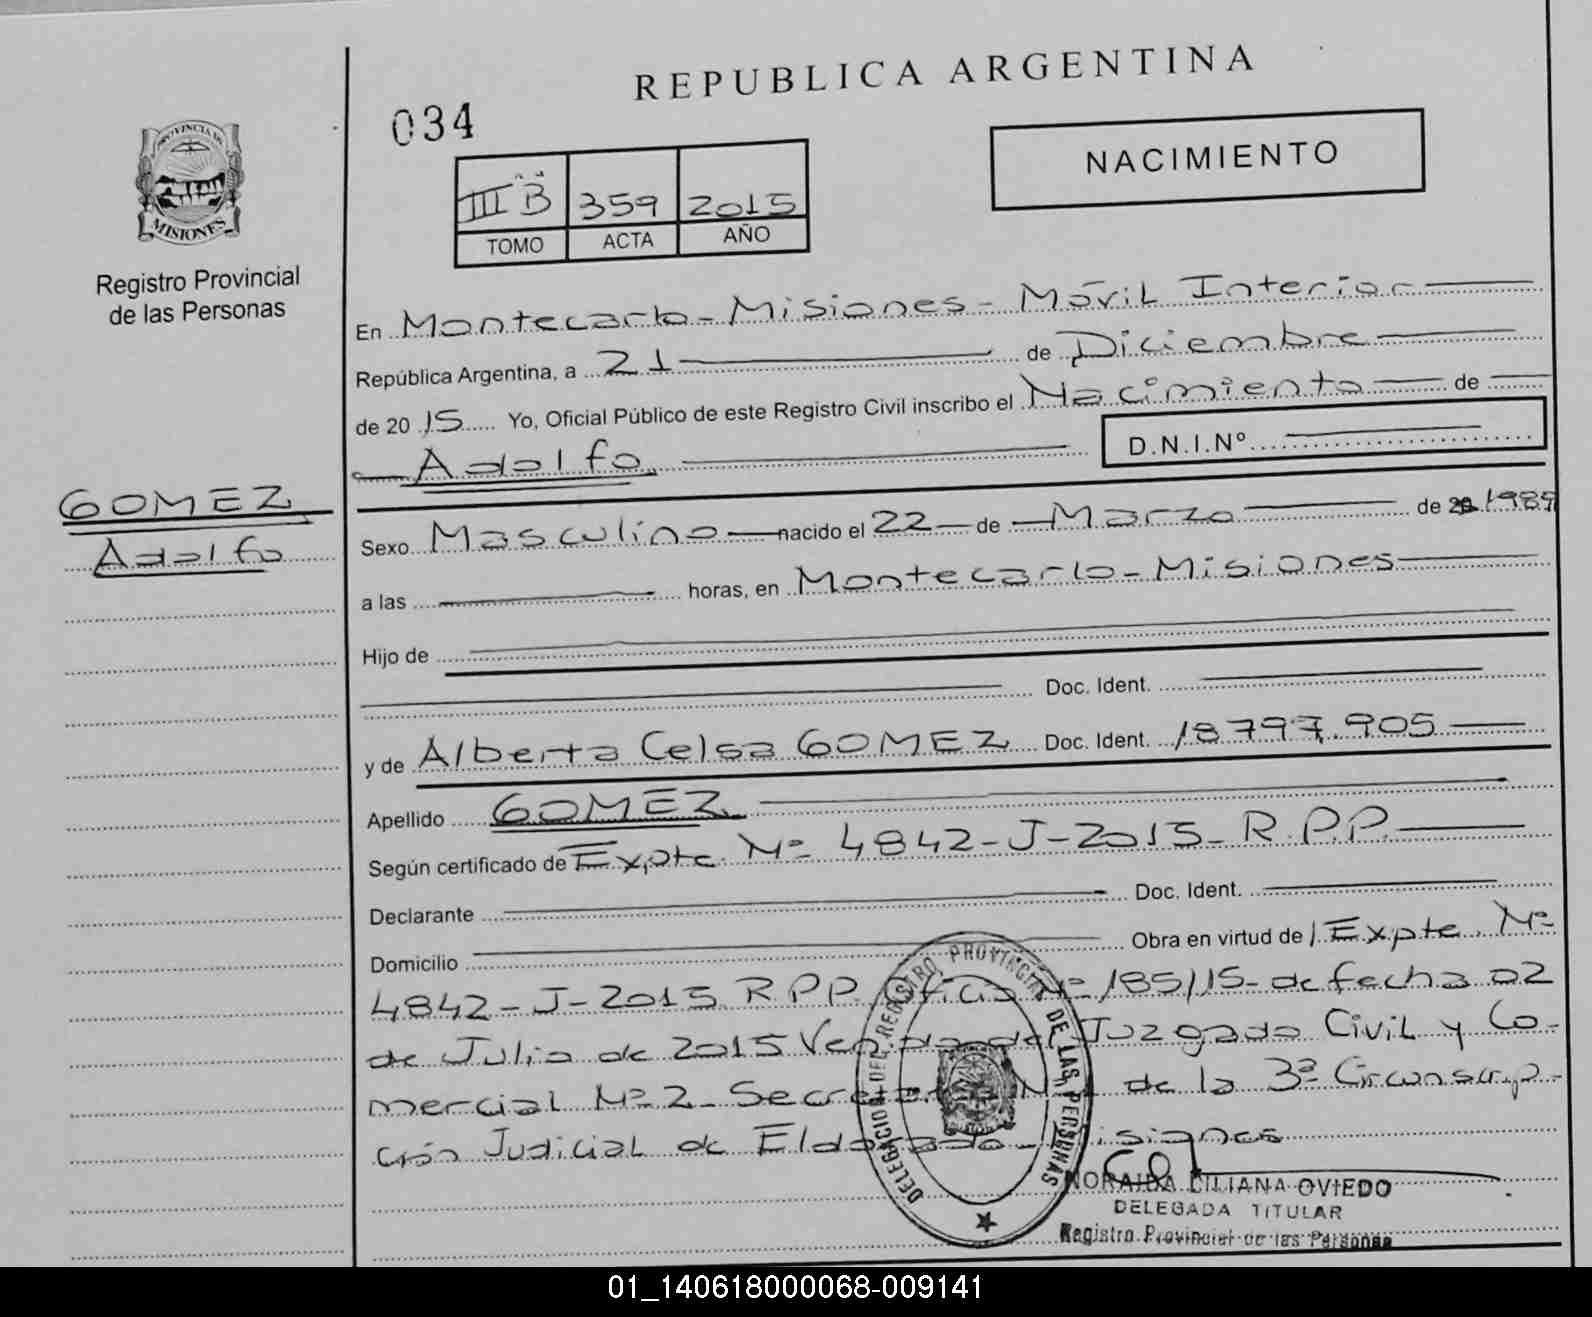 REPUBLICA ARGENTINA
034
NACIMIENTO
III "B" 359 2015
TOMO ACTA AÑO
PROVINCIA DE
MISIONES
Registro Provincial
de las Personas
En Montecarlo - Misiones - Móvil Interior
República Argentina, a 21 de Diciembre
de 2015 Yo, Oficial Público de este Registro Civil inscribo el Nacimiento de
Adolfo D.N.I.Nº
GOMEZ
Adolfo
Sexo Masculino nacido el 22 de Marzo de 1989
a las horas, en Montecarlo - Misiones
Hijo de
Doc. Ident.
y de Alberta Celsa GOMEZ Doc. Ident. 18797.905
Apellido GOMEZ
Según certificado de Expte. Nº 4842-J-2015- R.P.P.
Declarante Doc. Ident.
Domicilio Obra en virtud de Expte. Nº
4842-J-2015 R.P.P. Oficio Nº 185/15- de fecha 02
de Julio de 2015 del Juzgado Civil y Co-
mercial Nº 2- Secretaría de la 3ª Circunscrip-
ción Judicial de Eldorado - Misiones
DELEGACION DEL REGISTRO PROVINCIAL DE LAS PERSONAS
NORAIDA LILIANA OVIEDO
DELEGADA TITULAR
Registro Provincial de las Personas
01_140618000068-009141